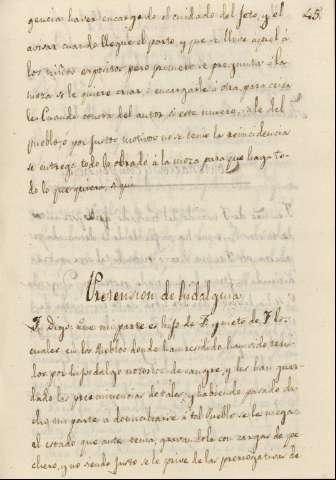 45.
gencia haver encargado el cuidado del feto, y el
avisar cuando llegue el parto y que se lleve aquel à
los niños expositos, pero primero se pregunta à la
moza si le quiere criar, ò encargarle à otra, para criar
le; Cuando conste del autor si este muere, ò le del
Pueblo, y por justos motivos no se teme la reincidencia
se entrega todo lo obrado à la moza para que haga to
do lo que quiera, y aqui
Pretension de hidalguia
F. Digo: que mi parte es hijo de F. y nieto de F. los
cuales en los Pueblos donde han residido han sido teni-
dos por hijosdalgo notorios de sangre, y les han guar-
dado las preeminencias de tales, y habiendo pasado di
cho mi parte à domiciliarse à tal Pueblo se le niega
el estado que antes tenia, gravandole con cargas de pe
chero, y no siendo justo se le prive de las prerrogativas de